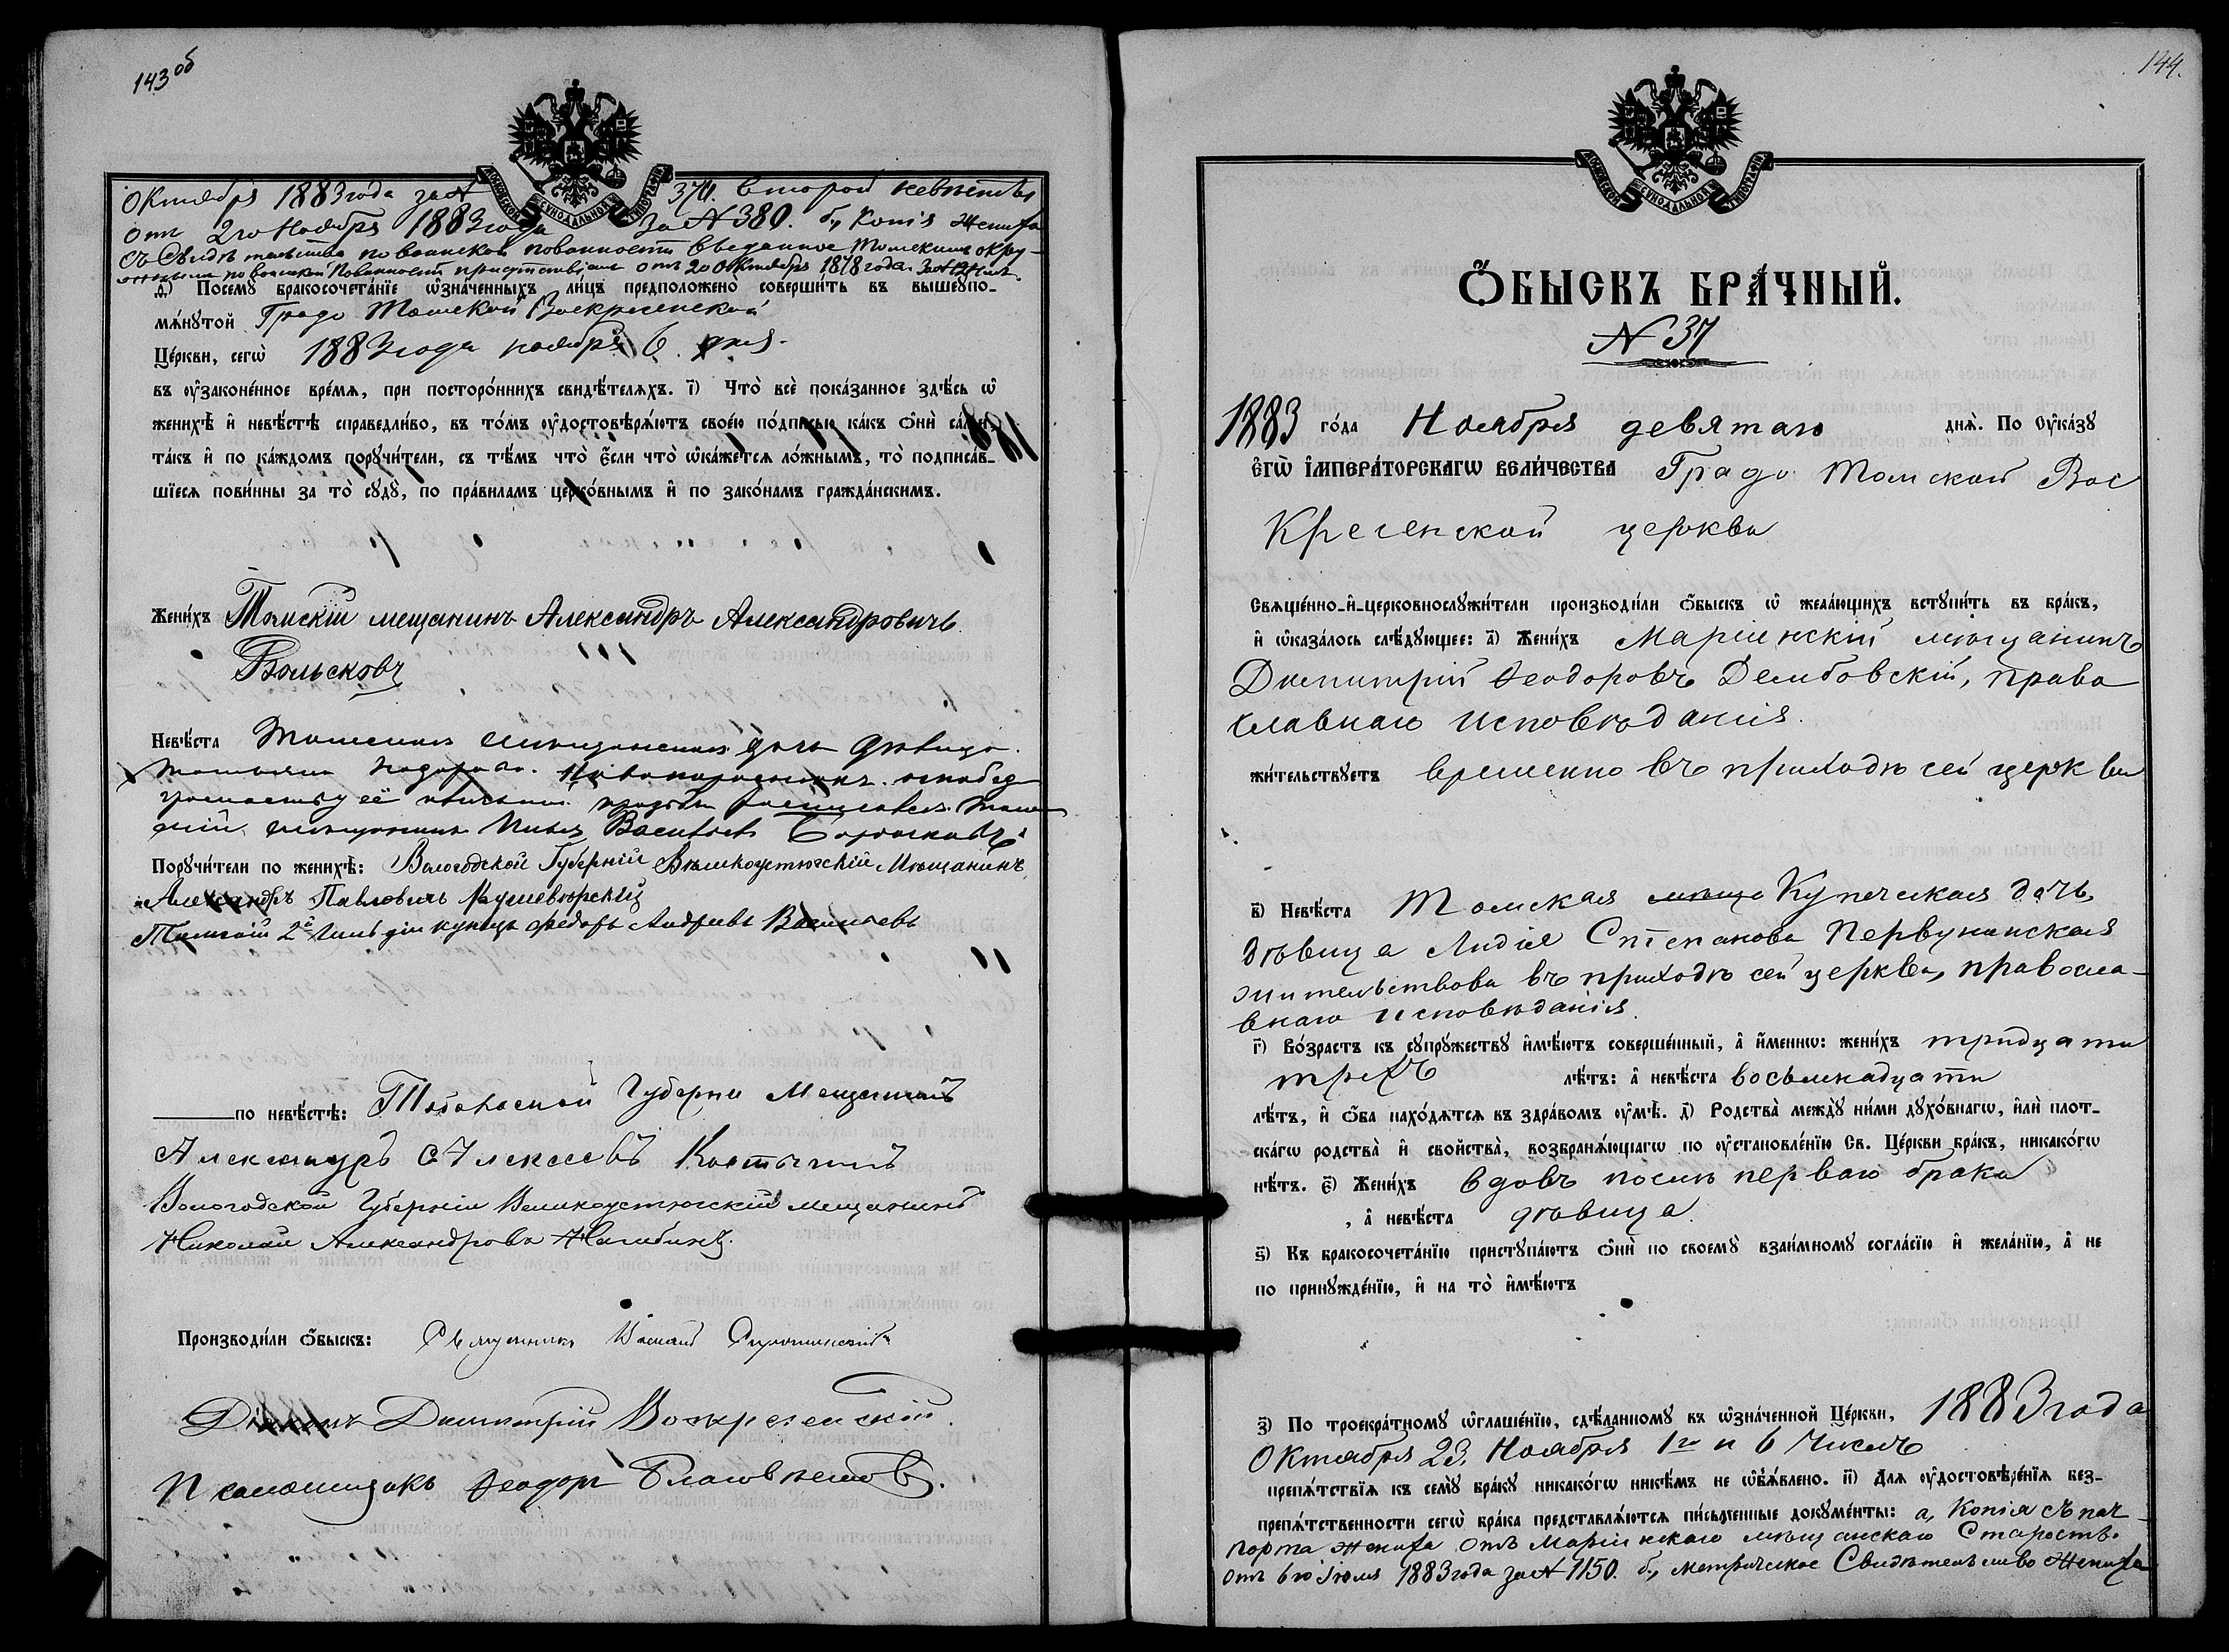 143 об
Октября 1883 года за № 374. второй невѣсты
отъ 2го Ноября 1883 года за № 380. б., Копія жениха
по воинской повинности выданное Томскимъ окру-
по воинской повинности присутствіемъ отъ 20 Октября 1878 года за №
д҃) Посемꙋ̀ бракосочета́нїе ѡ҆зна́ченныхъ ли́цъ предположено̀ соверши́ть въ вышеꙋпо-
мѧ́нꙋтой Градо Томской Воскресенской
Це́ркви, сегѡ̀ 1883 года ноября 6 дня.
въ ᲂу҆законе́нное вре́мѧ, при посторо́ннихъ свидѣ́телѧхъ. і҃) Что̀ всѐ пока́занное здѣ́сь ѡ҆
женихѣ̀ и҆ невѣ́стѣ справедли́во, въ то́мъ ᲂу҆достовѣрѧ́ютъ своє́ю по́дписью ка́къ ѻ҆нѝ са́ми,
та́къ и҆ по ка́ждомъ порꙋчи́тели, съ тѣ́мъ что̀ є҆́сли что̀ ѡ҆ка́жетсѧ ло́жнымъ, то̀ подписа́в-
шїесѧ пови́нны за то̀ сꙋдꙋ̀, по пра́виламъ церко́внымъ и҆ по зако́намъ гражда́нскимъ.
Жени́хъ Томскій мещанинъ Александръ Александровичъ
Вольсковъ
Невѣ́ста Томская мещанская дочь дѣвица
её просьбы росписался Том-
скій мещанинъ Васильевъ
Порꙋчи́тели по женихѣ̀: Вологодской Губерніи Великоустюгскій Мѣщанинъ
Александръ Павловичъ
Томскій 2й гильдіи купецъ Федоръ Андреевъ Васильевъ
по невѣ́стѣ: Тобольской Губерни Мещанинъ
Александръ Алексеевъ
Вологодской Губерніи Великоустюгскій мещанинъ
Николай Александровъ
Производи́ли ѻ҆́быскъ: Священникъ
Діаконъ Димитрій Воскресенскій.
Псаломщикъ Ѳеодоръ Благовѣстовъ.
144.
Ѻ҆́БЫСКЪ БРА́ЧНЫЙ.
№ 37
1883 го́да Ноября девятаго днѧ̀. По Оу҆ка́зꙋ
є҆гѡ̀ і҆мпера́торскагѡ вели́чества Градо Томской Вос
кресенской церкви
Свѧще́нно-и҆-церковнослꙋжи́тели производи́ли ѻ҆́быскъ ѡ҆ жела́ющихъ встꙋпи́ть въ бра́къ,
и҆ ѡ҆каза́лось слѣ́дꙋющее: а҃) Жени́хъ Маріинскій мѣщанинъ
Димитрій Ѳеодоровъ Дембовскій, право
славнаго исповѣданія.
жи́тельствꙋетъ временно въ приходѣ сей церкви
в҃) Невѣ́ста Томская мѣща Купеческая дочь,
дѣвица Лидія Степанова Первунинская
жительствова въ приходѣ сей церкви, правосла-
внаго исповѣданія.
г҃) Во́зрастъ къ сꙋпрꙋ́жествꙋ и҆мѣ́ютъ соверше́нный, а҆ и҆́меннѡ: жени́хъ тридцати
трехъ лѣ́тъ: а҆ невѣ́ста восьмнадцати
лѣ́тъ, и҆ ѻ҆́ба нахо́дѧтсѧ въ здра́вомъ ᲂу҆мѣ̀. д҃) Родства̀ междꙋ̀ ни́ми дꙋхо́внагѡ, и҆лѝ плот-
ска́гѡ родства̀ и҆ свойства̀, возбранѧ́ющагѡ по ᲂу҆становле́нїю Св. Це́ркви бра́къ, никако́гѡ
нѣ́тъ. є҃) Жени́хъ вдовъ послѣ перваго брака
, а҆ невѣ́ста дѣвица.
ѕ҃) Къ бракосочета́нїю пристꙋпа́ютъ ѻ҆нѝ по своемꙋ̀ взаи́мномꙋ согла́сїю и҆ жела́нїю, а҆ не
по принꙋжде́нїю, и҆ на то̀ и҆мѣ́ютъ
з҃) По троекра́тномꙋ ѡ҆глаше́нїю, сдѣ́ланномꙋ въ ѡ҆зна́ченной Це́ркви, 1883 года
Октября 23, Ноября 1го и 6 Числъ
препѧ́тствїѧ къ семꙋ̀ бра́кꙋ никако́гѡ никѣ́мъ не ѡ҆б̾ѧ́влено. и҃) Длѧ ᲂу҆достовѣре́нїѧ без-
препѧ́тственности сегѡ̀ бра́ка представлѧ́ютсѧ пи́сьменные докꙋме́нты: а, Копія съ пач-
порта жениха отъ Маріинскаго мѣщанскаго Старосты.
отъ 6го Іюля 1883 года за № 1150. б., метрическое Свидѣтельство жениха